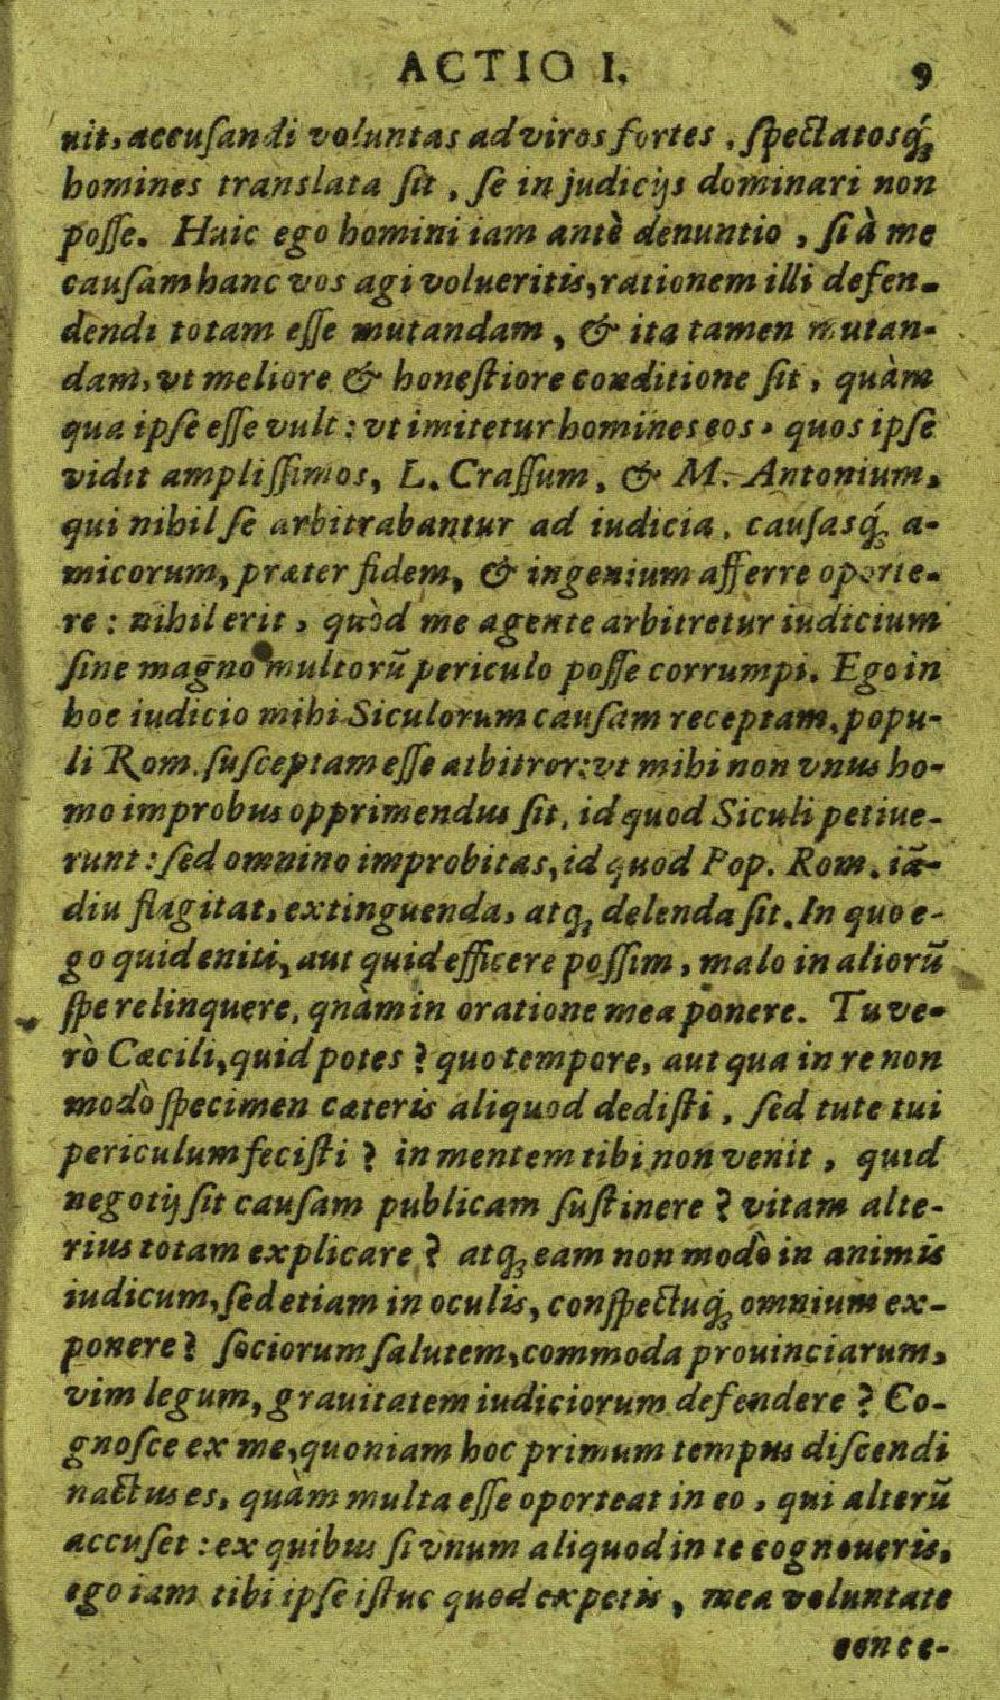 ACTIO I. 9
uit, accuſandi voluntas ad viros fortes, ſpectatosq́;
homines translata ſit, ſe in judicijs dominari non
poſſe. Huic ego homini iam antè denuntio, ſi à me
cauſam hanc vos agi volueritis, rationem illi defen-
dendi totam eſſe mutandam, & ita tamen mutan-
dam, vt meliore & honeſtiore conditione ſit, quàm
qua ipſe eſſe vult: vt imitetur homines eos, quos ipſe
vidit ampliſſimos, L. Craſſum, & M. Antonium,
qui nihil ſe arbitrabantur ad iudicia, cauſasq́; a-
micorum, præter fidem, & ingenium afferre oporte-
re: nihil erit, quòd me agente arbitretur iudicium
ſine magno multorũ periculo poſſe corrumpi. Ego in
hoc iudicio mihi Siculorum cauſam receptam, popu-
li Rom. ſuſceptam eſſe atbitror: vt mihi non vnus ho-
mo improbus opprimendus ſit, id quod Siculi petiue-
runt: ſed omnino improbitas, id quod Pop. Rom. iã-
diu flagitat, extinguenda, atq; delenda ſit. In quo e-
go quid eniti, aut quid efficere poſſim, malo in aliorũ
ſpe relinquere, qnàm in oratione mea ponere. Tu ve-
rò Cæcili, quid potes? quo tempore, aut qua in re non
modò ſpecimen cæteris aliquod dediſti, ſed tute tui
periculum feciſti? in mentem tibi non venit, quid
negotij ſit cauſam publicam ſuſtinere? vitam alte-
rius totam explicare? atq; eam non modò in animis
iudicum, ſed etiam in oculis, conſpectuq́; omnium ex-
ponere? ſociorum ſalutem, commoda prouinciarum,
vim legum, grauitatem iudiciorum defendere? Co-
gnoſce ex me, quoniam hoc primum tempus diſcendi
nactus es, quàm multa eſſe oporteat in eo, qui alterũ
accuſet: ex quibus ſi vnum aliquod in te cognoueris,
ego iam tibi ipſe iſtuc quod expetis, mea voluntate
conce-